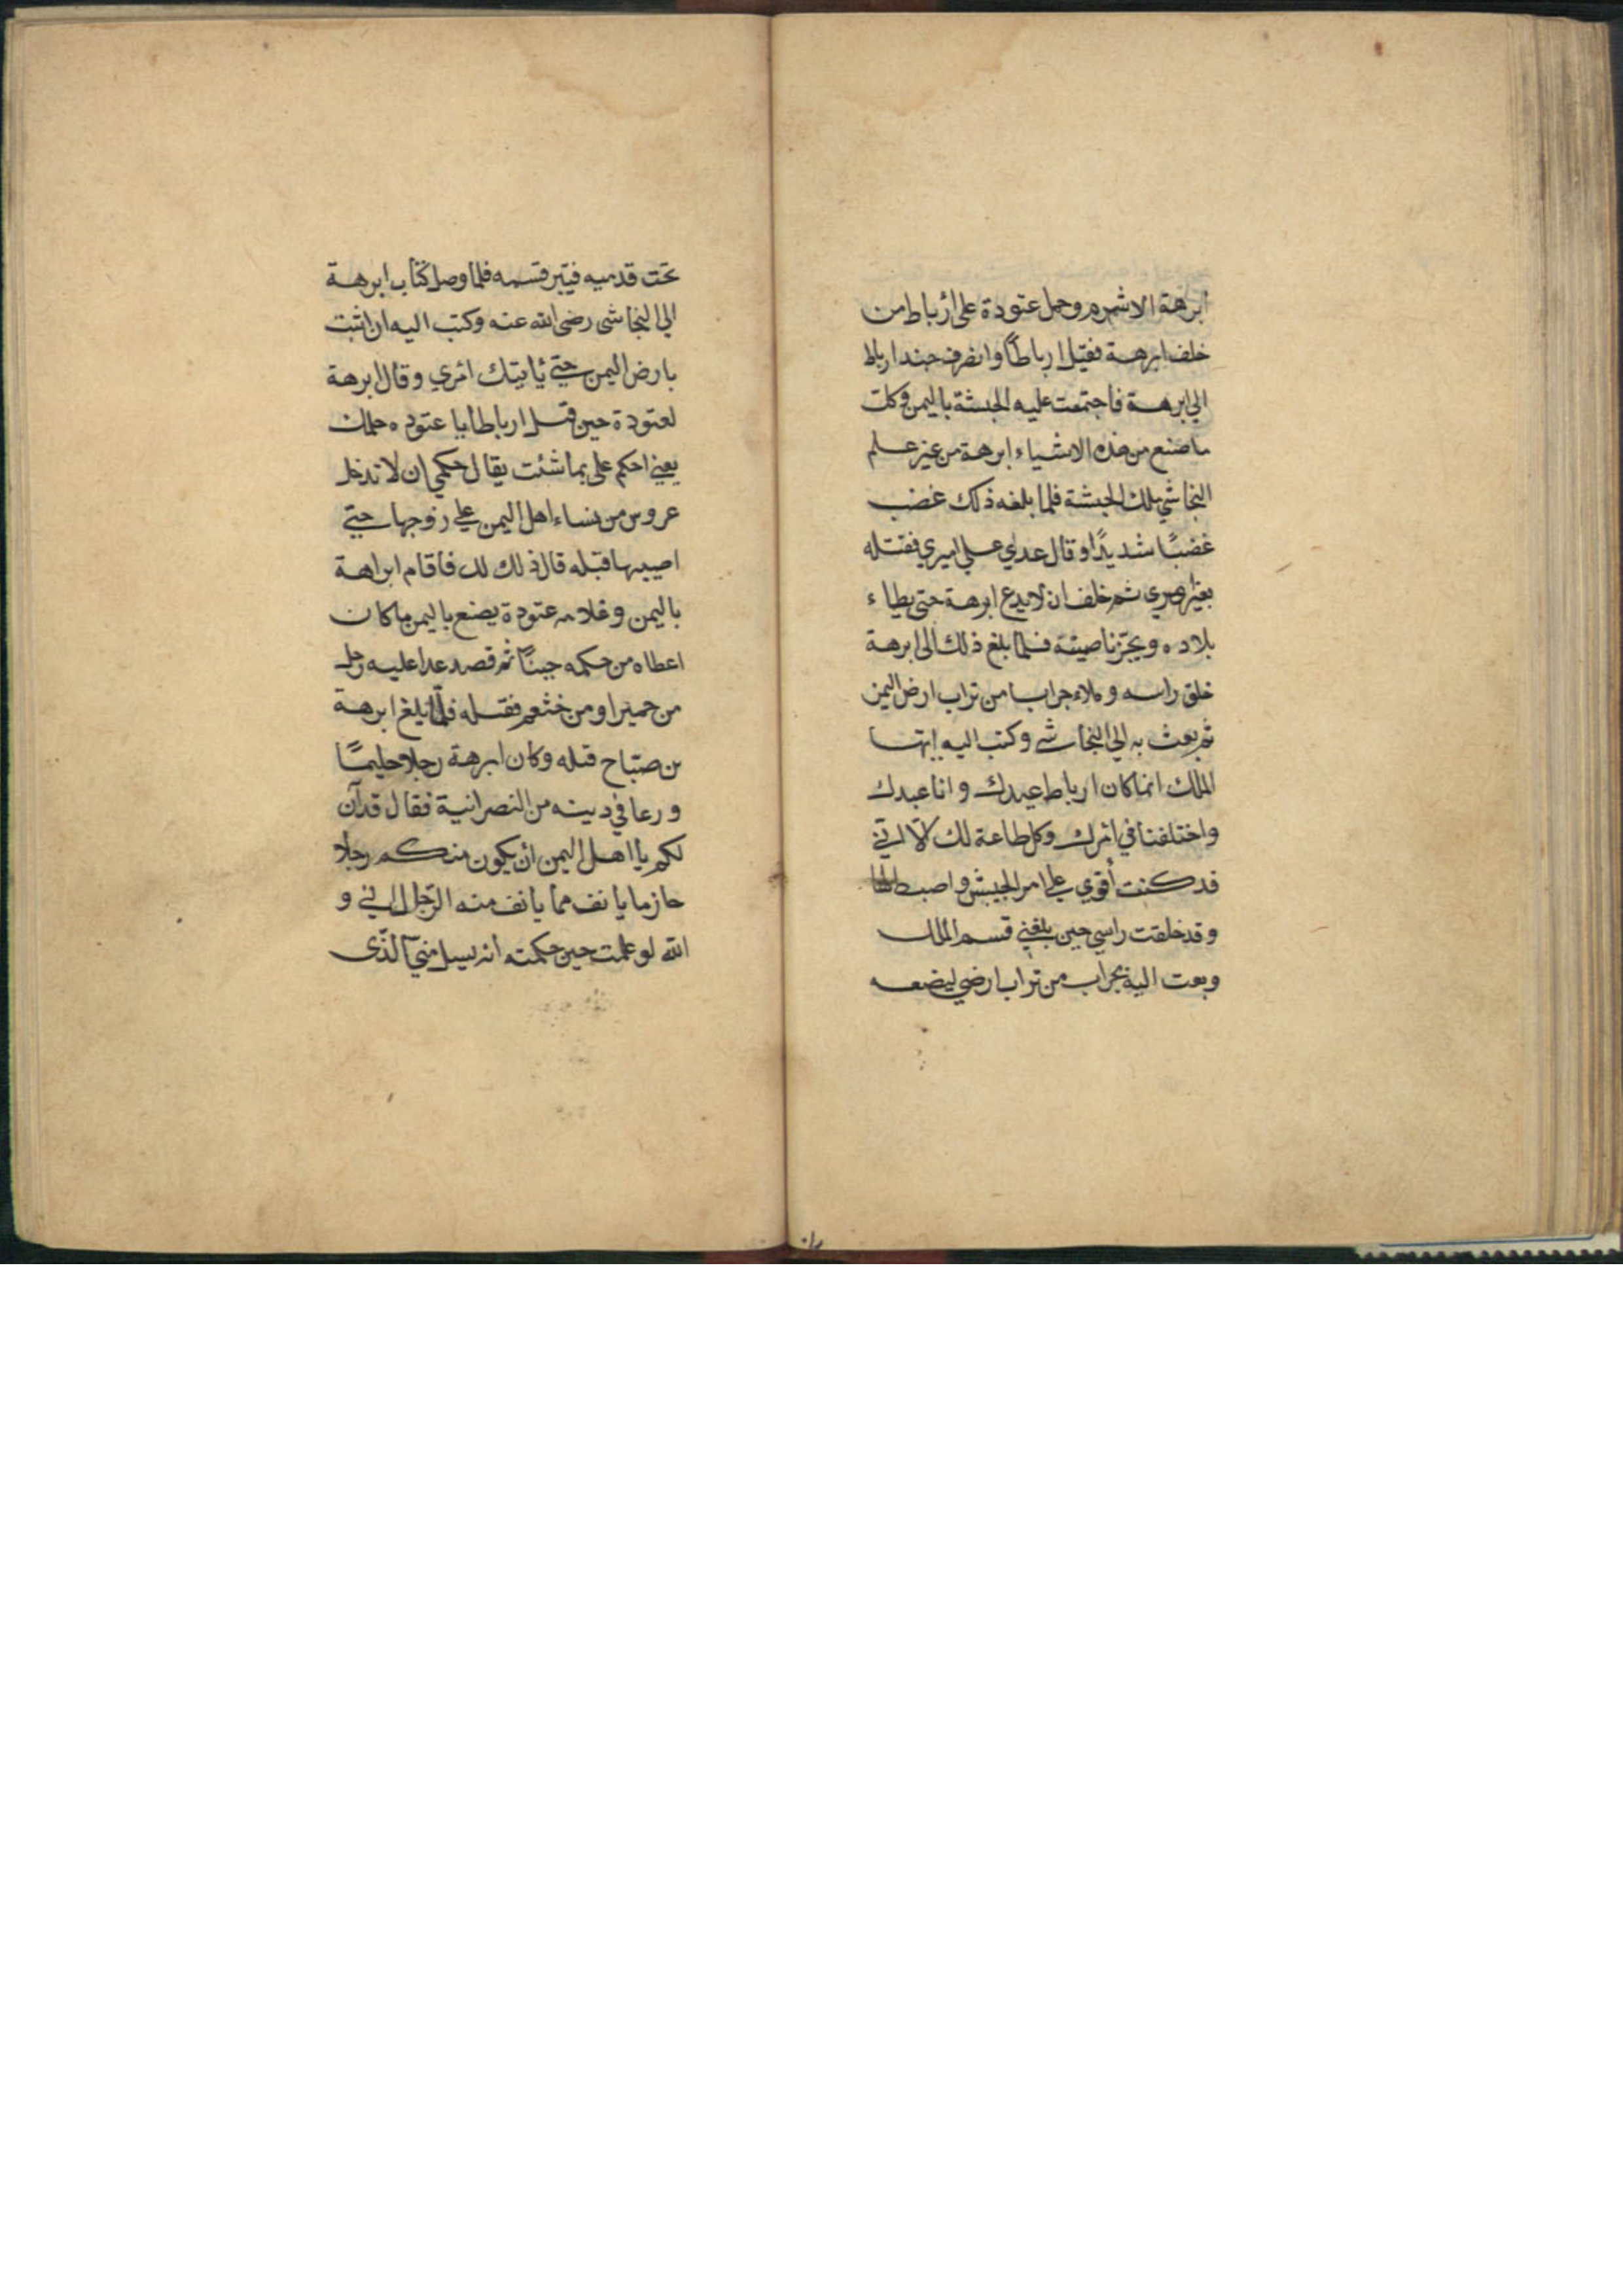 ابرهة الاشرم وحمل عتودة على أرباط من
خلف ابرهة فقتل ارباطًا وانصرف جند ارباط
الي ابرهة فاجتمعت عليه الحبشة باليمن وكلت
ما صنع من هذه الاشياء ابرهة من غير علم
النجاشي ملك الحبشة فلما بلغه ذلك غضب
غضبًا شديدًا وقال عدي علي اميري فقتله
بغير امري ثم حلف ان لا يدع ابرهة حتى يطاء
بلاده ويجز ناصيته فلما بلغ ذلك الى ابرهة
حلق راسه وملاء جرابا من تراب ارض اليمن
ثم بعث به الي النجاشي وكتب اليه ايها
الملك انما كان ارباط عبدك وانا عبدك
واختلفنا في امرك وكل طاعة لك الا اني
قد كنت أقوي علي امر الجيش واضبط لها
وقد حلقت راسي حين بلغني قسم الملك
وبعت اليه بجراب من تراب ارضي ليضعه
تحت قدميه فيبر قسمه فلما وصل كتاب ابرهة
الي النجاشي رضي الله عنه وكتب اليه ان اثبت
بارض اليمن حتي ياتيك امري وقال ابرهة
لعتودة حين قتل ارباطا يا عتوده حكمك
يعني احكم على بما شئت يقال حكمي ان لا تدخل
عروس من نساء اهل اليمن علي زوجها حتي
اصيبها قبله قال ذلك لك فاقام ابراهة
باليمن وغلامه عتودة يصنع باليمن ما كان
اعطاه من حكمه حينًا ثم قصد عدا عليه رجل
من حمير او من خثعم فقتله فلما بلغ ابرهة
بن صباح قتله وكان ابرهة رجلا حليمًا
ورعا في دينه من النصرانية فقال قد آن
لكم يا اهل اليمن ان يكون منكم رجلا
حازما يانف مما يانف منه الرجل اني و
الله لو علمت حين حكمته انه يسل مني الذي